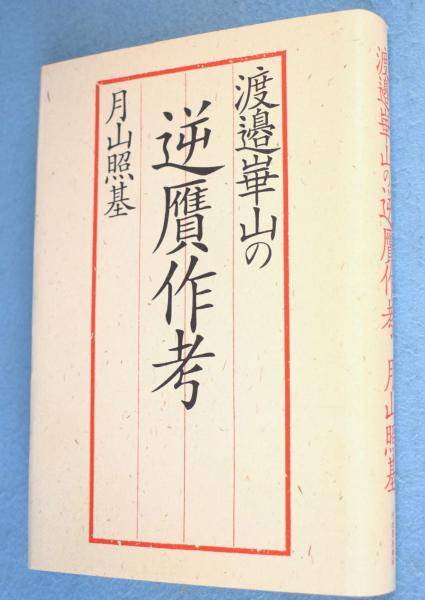 渡邉崋山の
逆贋作考
月山照基
渡邉崋山の逆贋作考 月山照基